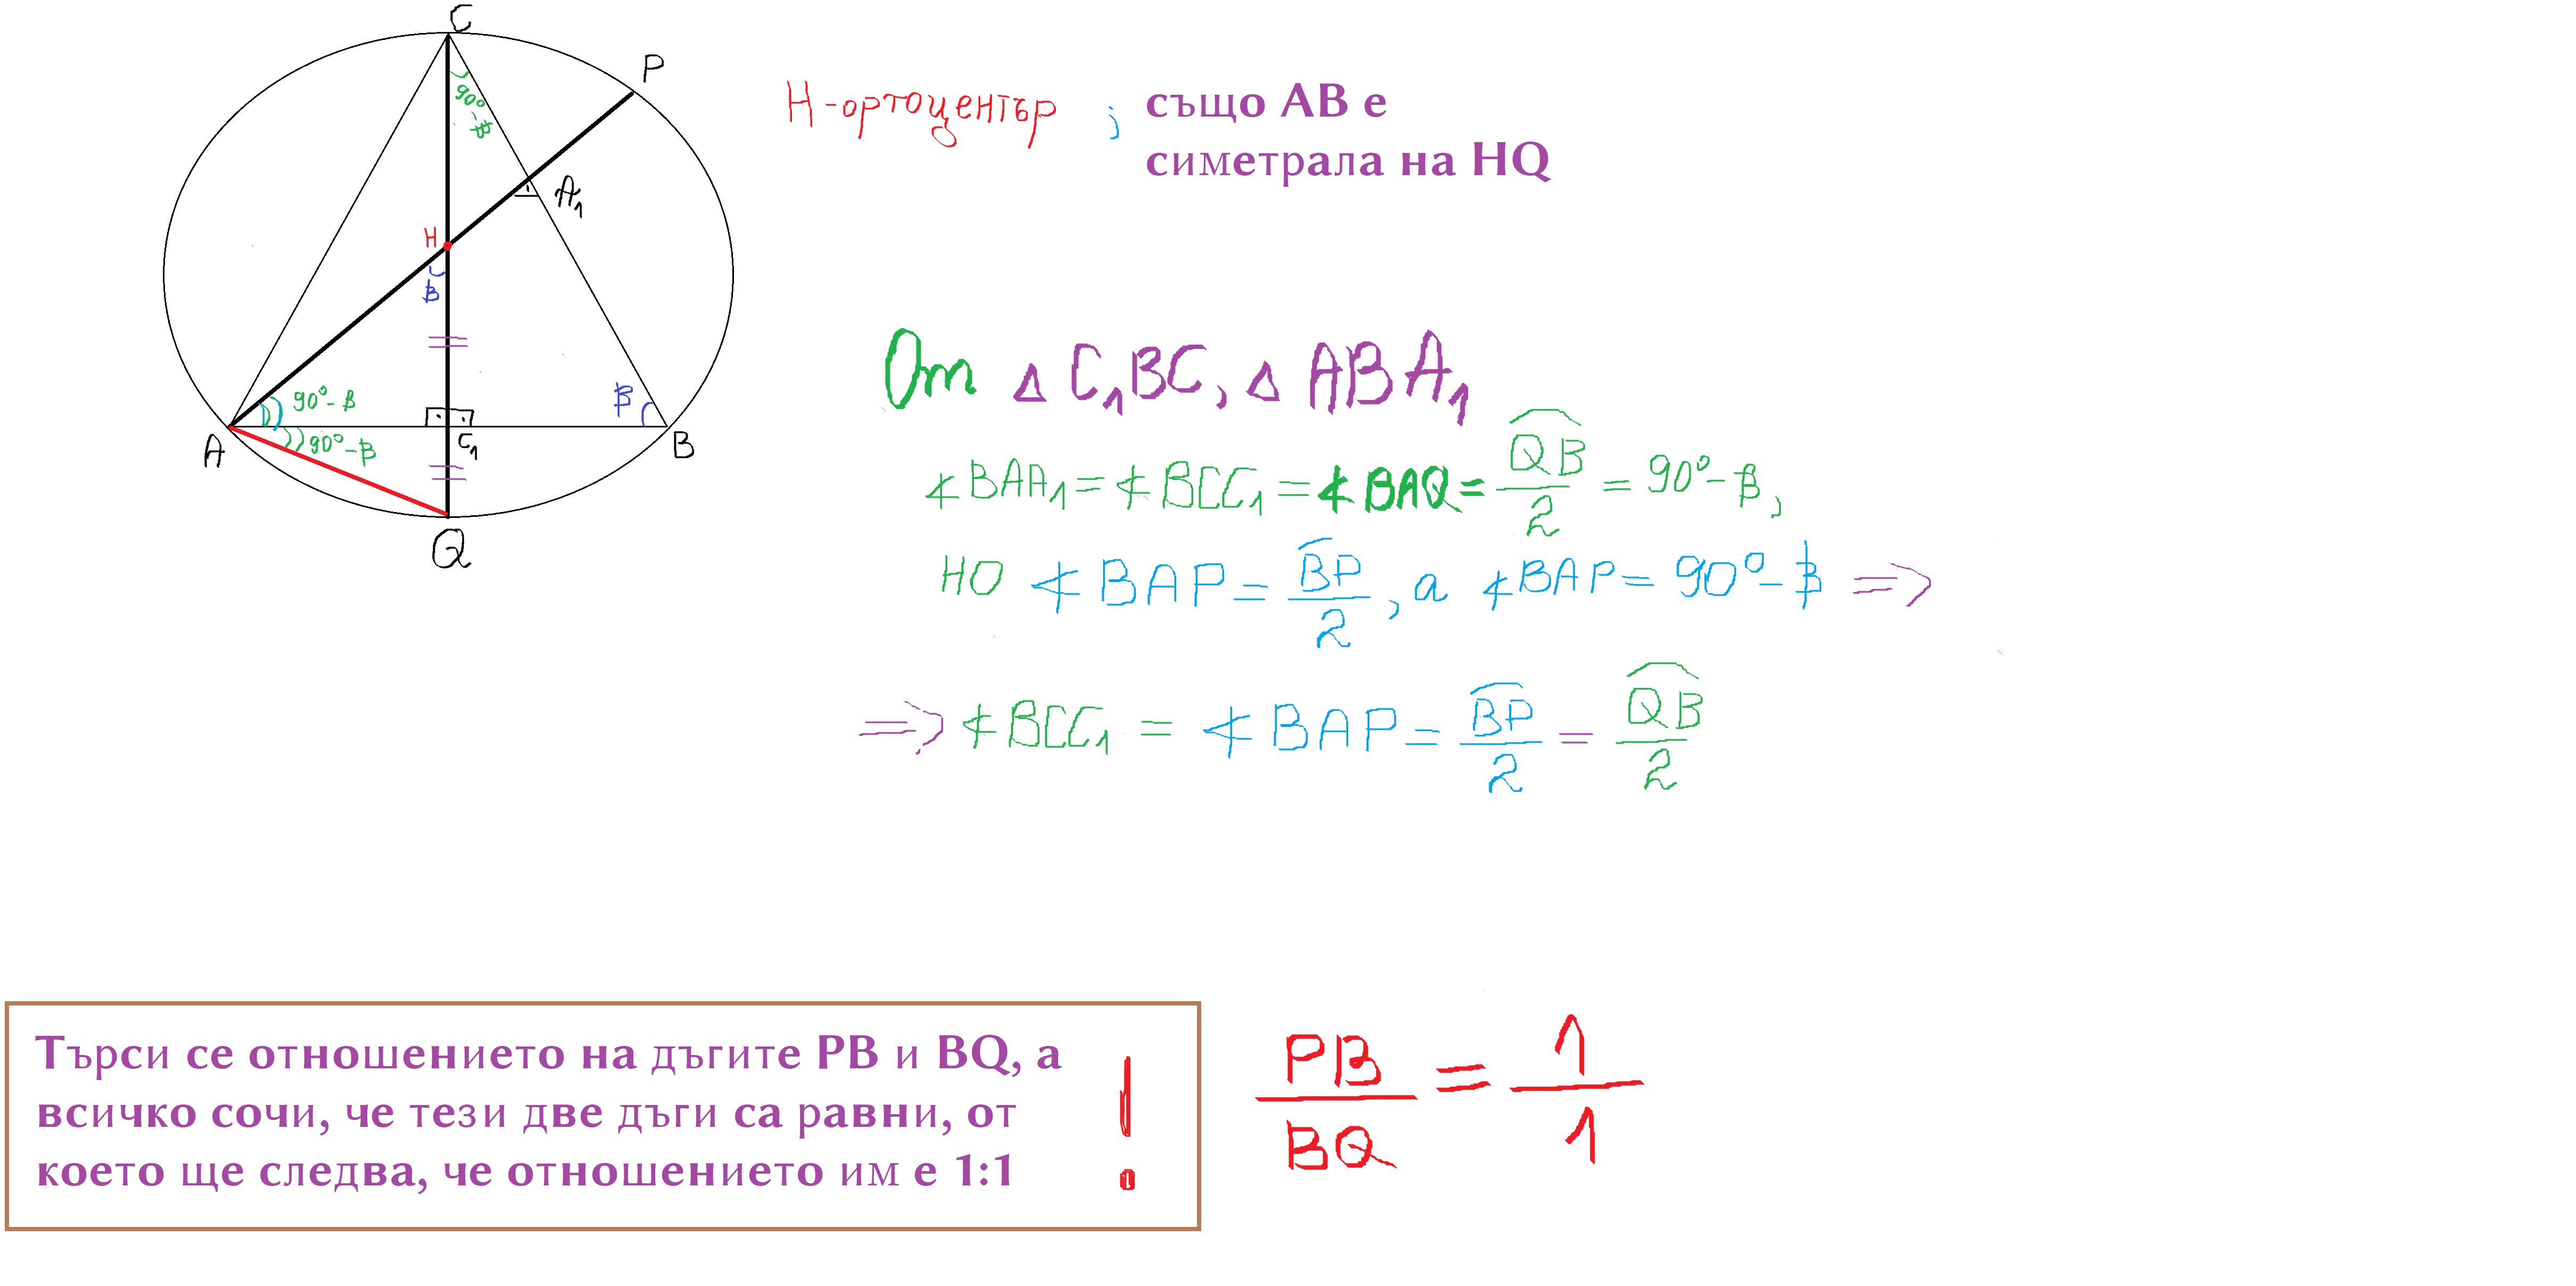 C
P
90°-β
A₁
H
β
90°-β
β
A
90°-β
C₁
B
Q
H-ортоцентър ; също AB е
симетрала на HQ
От △ C₁BC, △ ABA₁
∢BAA₁ = ∢BCC₁ = ∢BAQ = QB/2 = 90°-β,
но ∢BAP = BP/2, а ∢BAP = 90°-β =>
=> ∢BCC₁ = ∢BAP = BP/2 = QB/2
Търси се отношението на дъгите PB и BQ, а
всичко сочи, че тези две дъги са равни, от
което ще следва, че отношението им е 1:1
!
PB/BQ = 1/1